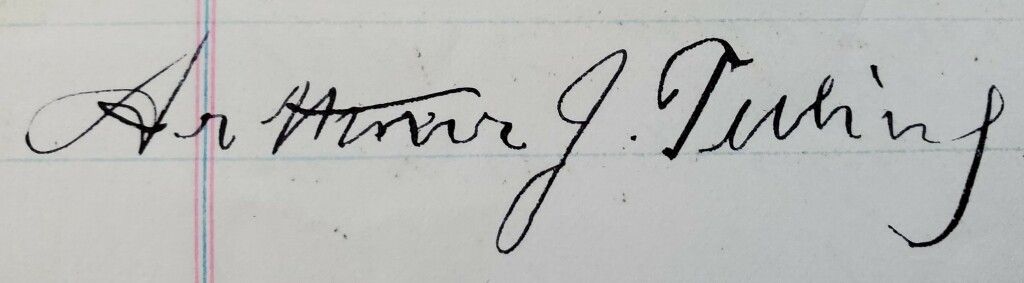 Arthur J. Tubing